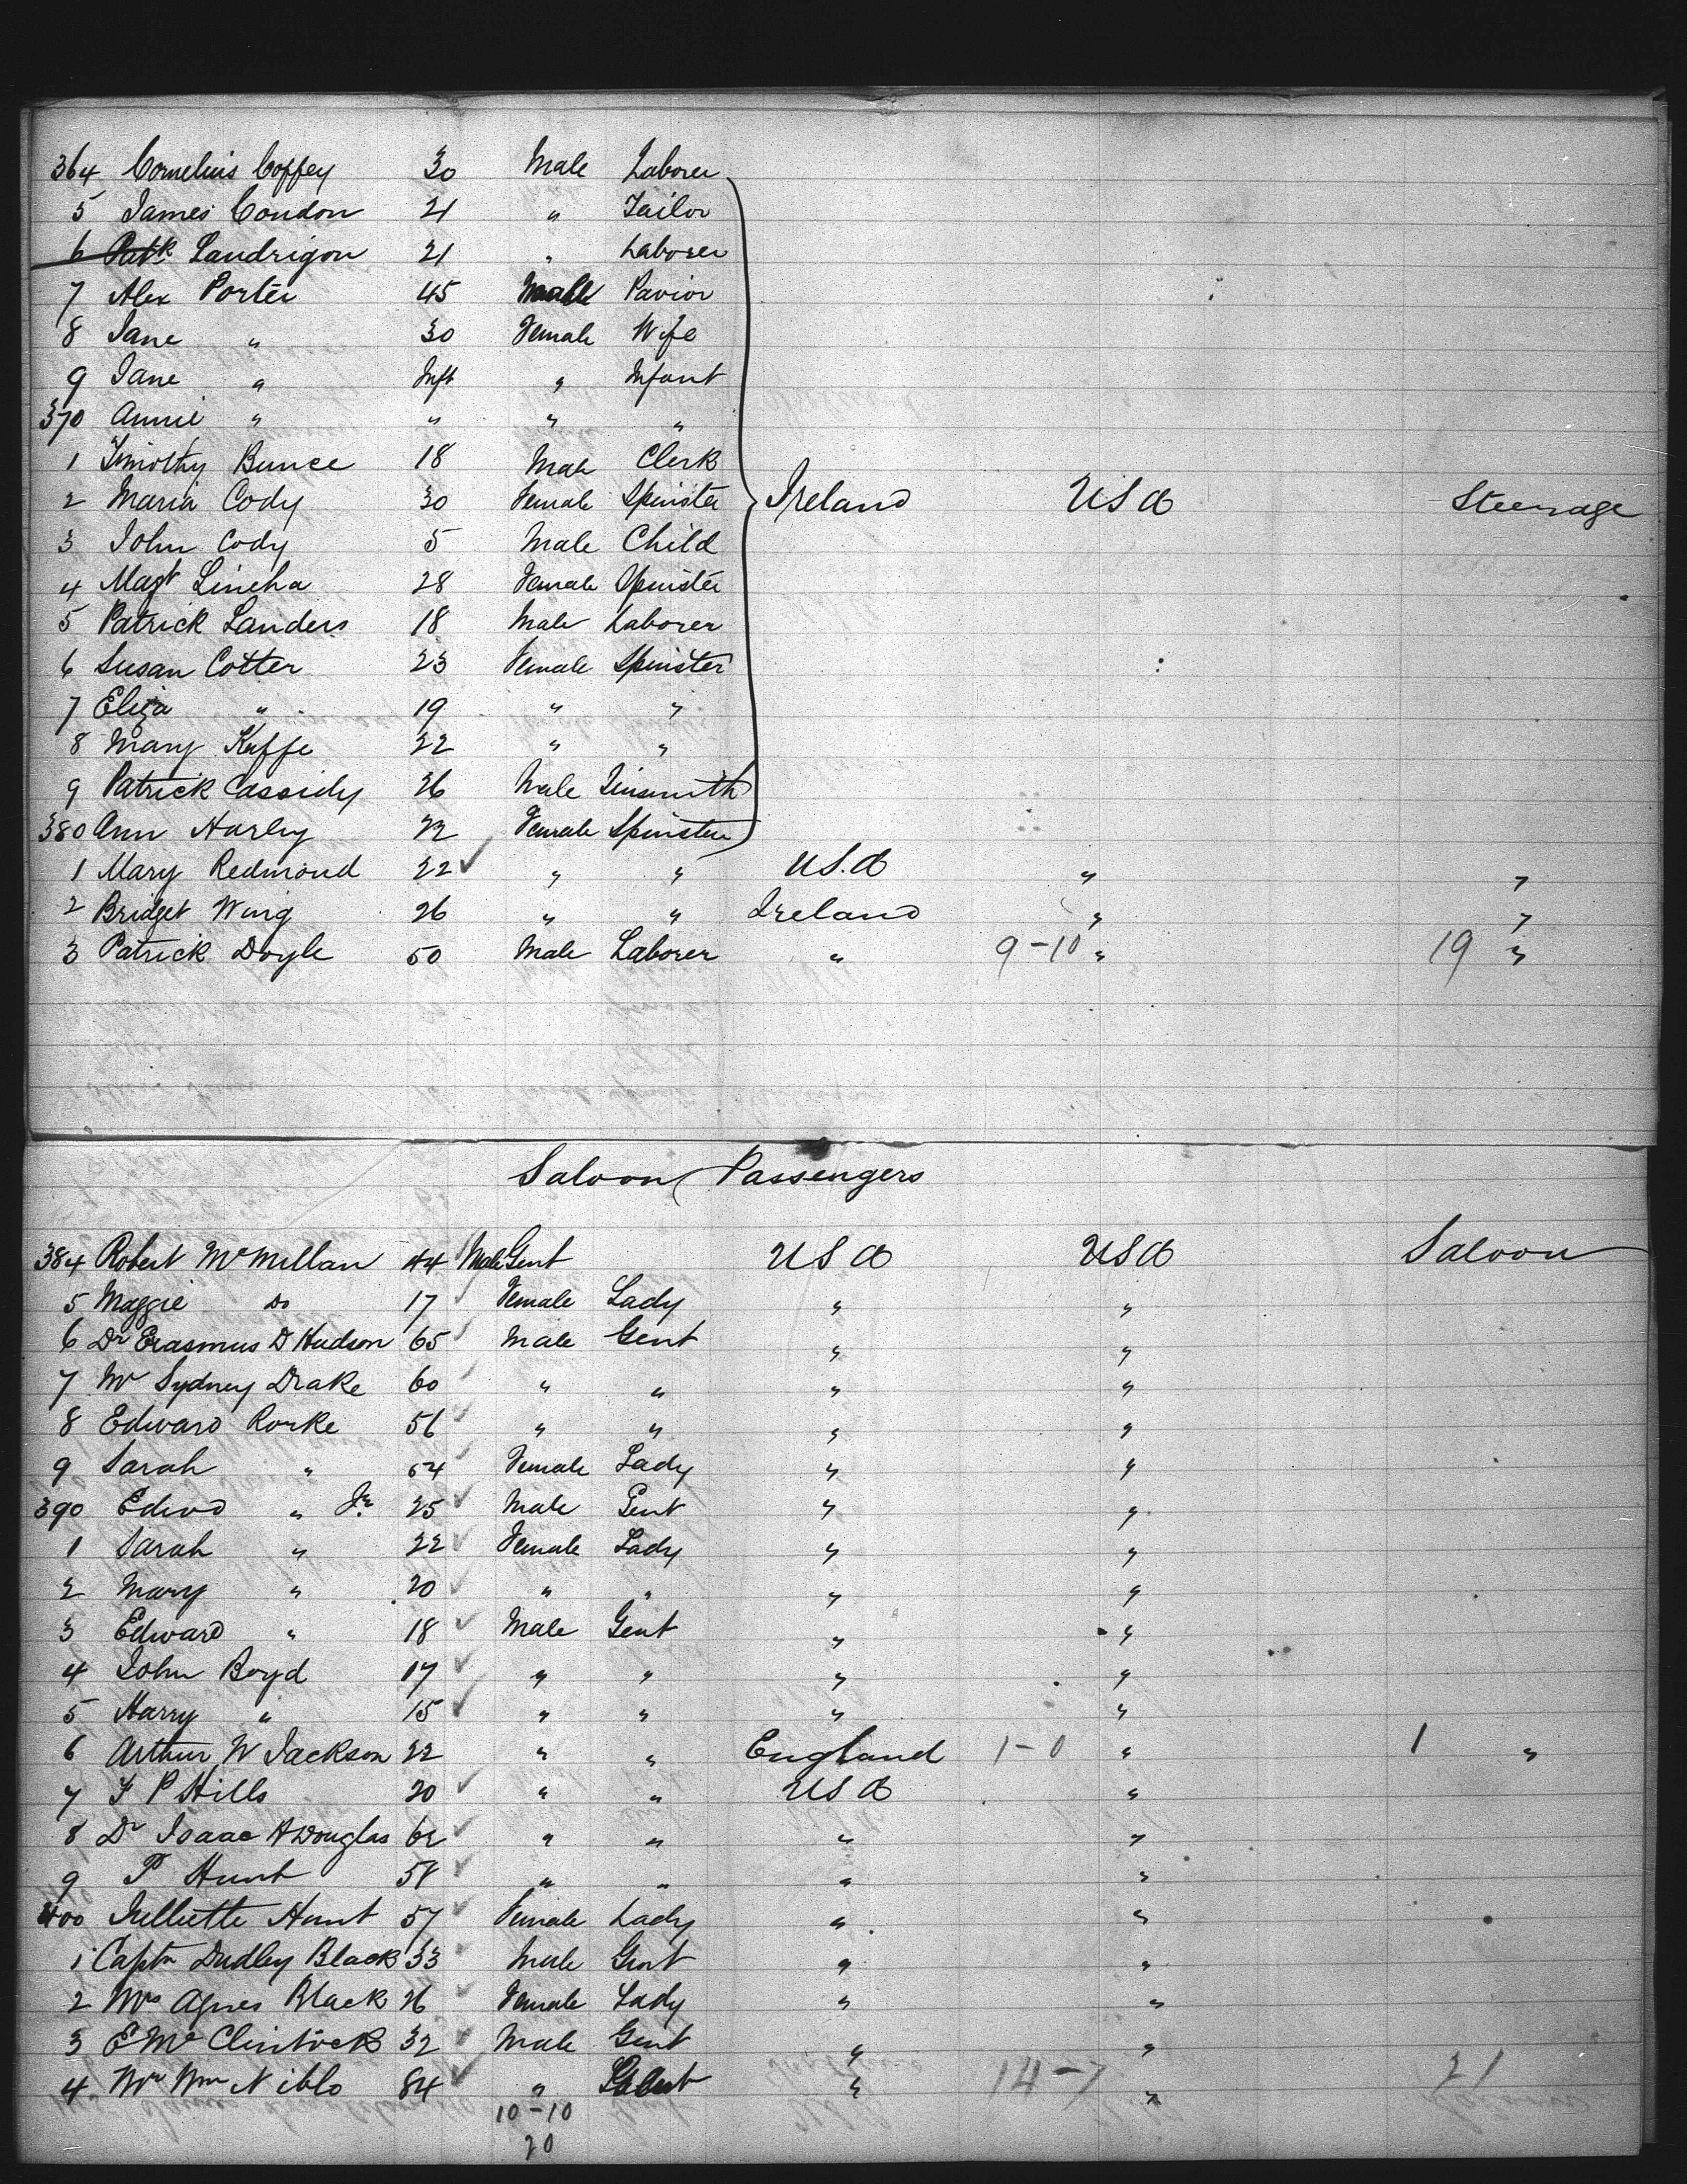 364 Cornelius Coffey 30 Male Laborer
5 James Condon 21 " Tailor
6 Patk Landrigon 21 " Laborer
7 Alex Porter 45 Male Pavior
8 Jane " 30 Female Wife
9 Jane " Inft " Infant
370 Annie " " " "
1 Timothy Bunce 18 Male Clerk
2 Maria Cody 30 Female Spinster Ireland USA Steerage
3 John Cody 5 Male Child
4 Magt Lineha 28 Female Spinster
5 Patrick Landers 18 Male Laborer
6 Susan Cotter 23 Female Spinster
7 Eliza " 19 " "
8 Mary Kuffe 22 " "
9 Patrick Cassidy 26 Male Tinsmith
380 Ann Harley 22 Female Spinster
1 Mary Redmond 22 ✓ " " U.S.A " "
2 Bridget Wing 26 " " Ireland " "
3 Patrick Doyle 50 Male Laborer " 9-10 " 19 "
Saloon Passengers
384 Robert McMillan 44 Male Gent USA USA Saloon
5 Maggie Do 17 ✓ Female Lady " "
6 Dr Erasmus D Hudson 65 ✓ Male Gent " "
7 Mr Sydney Drake 60 ✓ " " " "
8 Edward Rorke 56 ✓ " " " "
9 Sarah " 54 ✓ Female Lady " "
390 Edwd " Jr. 25 ✓ Male Gent " "
1 Sarah " 22 ✓ Female Lady " "
2 Mary " 20 ✓ " " " "
3 Edward " 18 ✓ Male Gent " "
4 John Boyd 17 ✓ " " " "
5 Harry " 15 ✓ " " " "
6 Arthur W Jackson 22 " " England 1-0 " 1 "
7 F P Hills 20 ✓ " " USA "
8 Dr Isaac A Douglas 62 ✓ " " " "
9 T Hunt 58 ✓ " " " "
400 Julliette Hunt 57 ✓ Female Lady " "
1 Captn Dudley Black 33 ✓ Male Gent " "
2 Mrs Agnes Black 26 ✓ Female Lady " "
3 E McClintock 32 ✓ Male Gent " "
4 Mr Wm Niblo 84 ✓ " Gent " 14-7 " 21
10-10
20